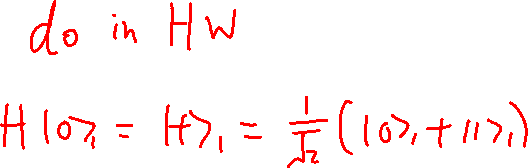 do in HW
H|0⟩₁ = |+⟩₁ = 1/√2 (|0⟩₁ + |1⟩₁)